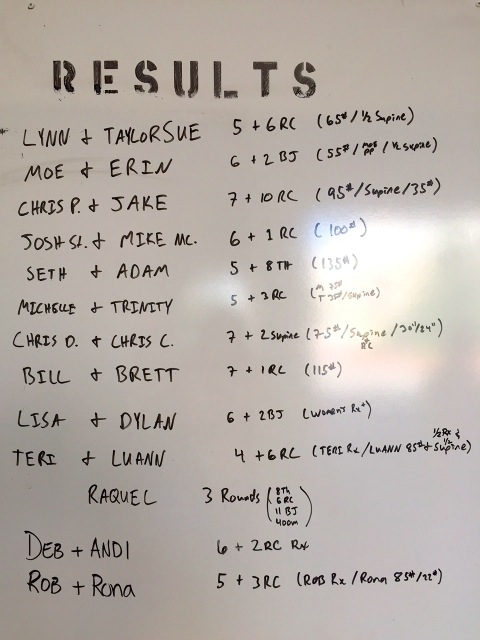 RESULTS
LYNN & TAYLORSUE 5 + 6RC (65# / 1/2 Supine)
MOE & ERIN 6 + 2 BJ (55# / MOE PP / 1/2 Supine)
CHRIS P. & JAKE 7 + 10 RC (95# / Supine / 35#)
JOSH St. & MIKE MC. 6 + 1 RC (100#)
SETH & ADAM 5 + 8 TH (135#)
MICHELLE & TRINITY 5 + 3 RC (M 75# T 35# / Supine)
CHRIS O. & CHRIS C. 7 + 2 Supine (75# / Supine RC / 30"/24")
BILL & BRETT 7 + 1RC (115#)
LISA & DYLAN 6 + 2BJ (Women's Rx+)
TERI & LUANN 4 + 6RC (TERI Rx / LUANN 85# & 1/2 Rx & 1/2 Supine)
RAQUEL 3 Rounds (8TH
6 RC
11 BJ
400m)
DEB + ANDI 6 + 2RC Rx
ROB + Rona 5 + 3RC (ROB Rx / Rona 85#/22#)